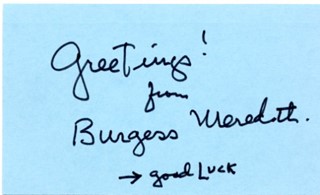 Greetings!
from
Burgess Meredith.
→ good Luck